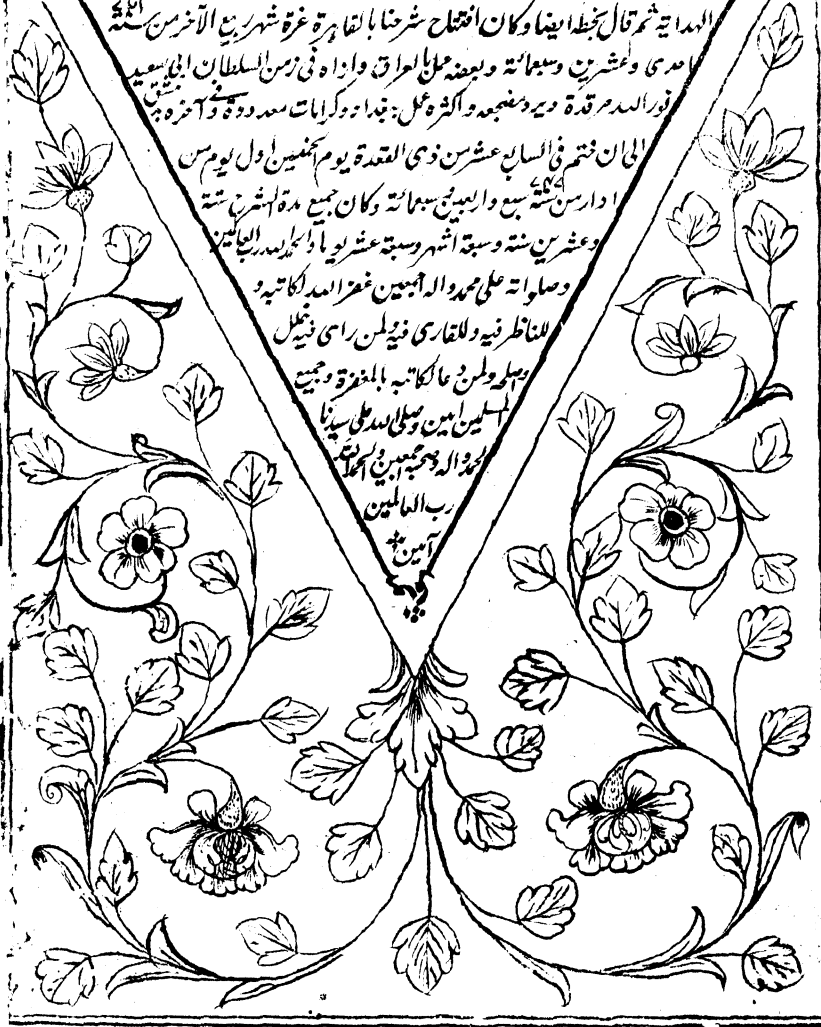 الهداية ثم قال بخطه ايضا وكان افتتاح شرحنا بالقاهرة غرة شهر ربيع الآخر من سنة ٧٢١
احدى وعشرين وسبعمائة وبعضه عمل بالعراق واراه في زمن السلطان ابي سعيد
نور الله مرقده وبرد مضجعه واكثره عمل ببغداد وكرابات معدودة وآخره بدمشق
الى ان ختم في السابع عشر من ذى القعدة يوم الخميس اول يوم من
ادار من سنة ٧٤٧ سبع واربعين سبعمائة وكان جميع مدة الشرح ستة
وعشرين سنة وسبعة اشهر وسبعة عشر يوما والحمد لله رب العالمين
وصلواته على محمد واله اجمعين غفر الله لكاتبه و
للناظر فيه وللقارى فيه ولمن راى فيه خلل
واصلحه ولمن دعا لكاتبه بالمغفرة وجميع
المسلمين امين وصلى الله على سيدنا
محمد واله وصحبه اجمعين والحمد لله
رب العالمين
آمين